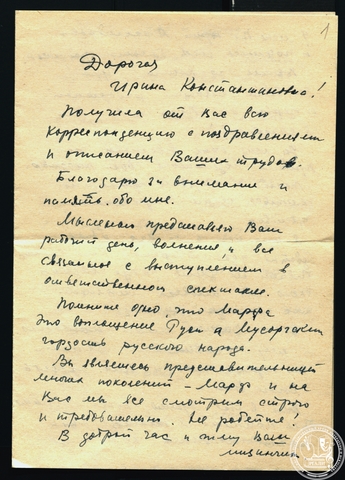 1
Дорогая
Ирина Константиновна!
Получила от Вас всю
корреспонденцию с поздравлениями
и описанием Ваших трудов.
Благодарю за внимание и
память обо мне.
Мысленно представляю Ваш
рабочий день, волнения и все
связанное с выступлением в
ответственном спектакле.
Помните одно, что Марфа
это воплощение Руси а Мусоргский
гордость русского народа.
Вы являетесь представительницей
многих поколений – Марф и на
Вас мы все смотрим строго
и требовательно. Не робейте!
В добрый час и жму Ваши